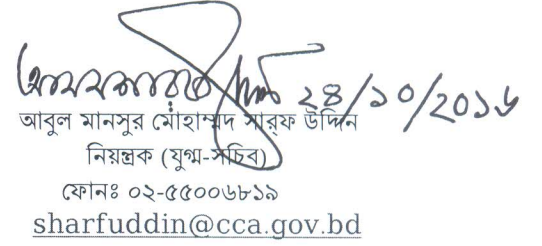 ২৪/১০/২০১৬
আবুল মানসুর মোহাম্মদ সার্‌ফ উদ্দিন
নিয়ন্ত্রক (যুগ্ম-সচিব)
ফোনঃ ০২-৫৫০০৬৮১৯
sharfuddin@cca.gov.bd